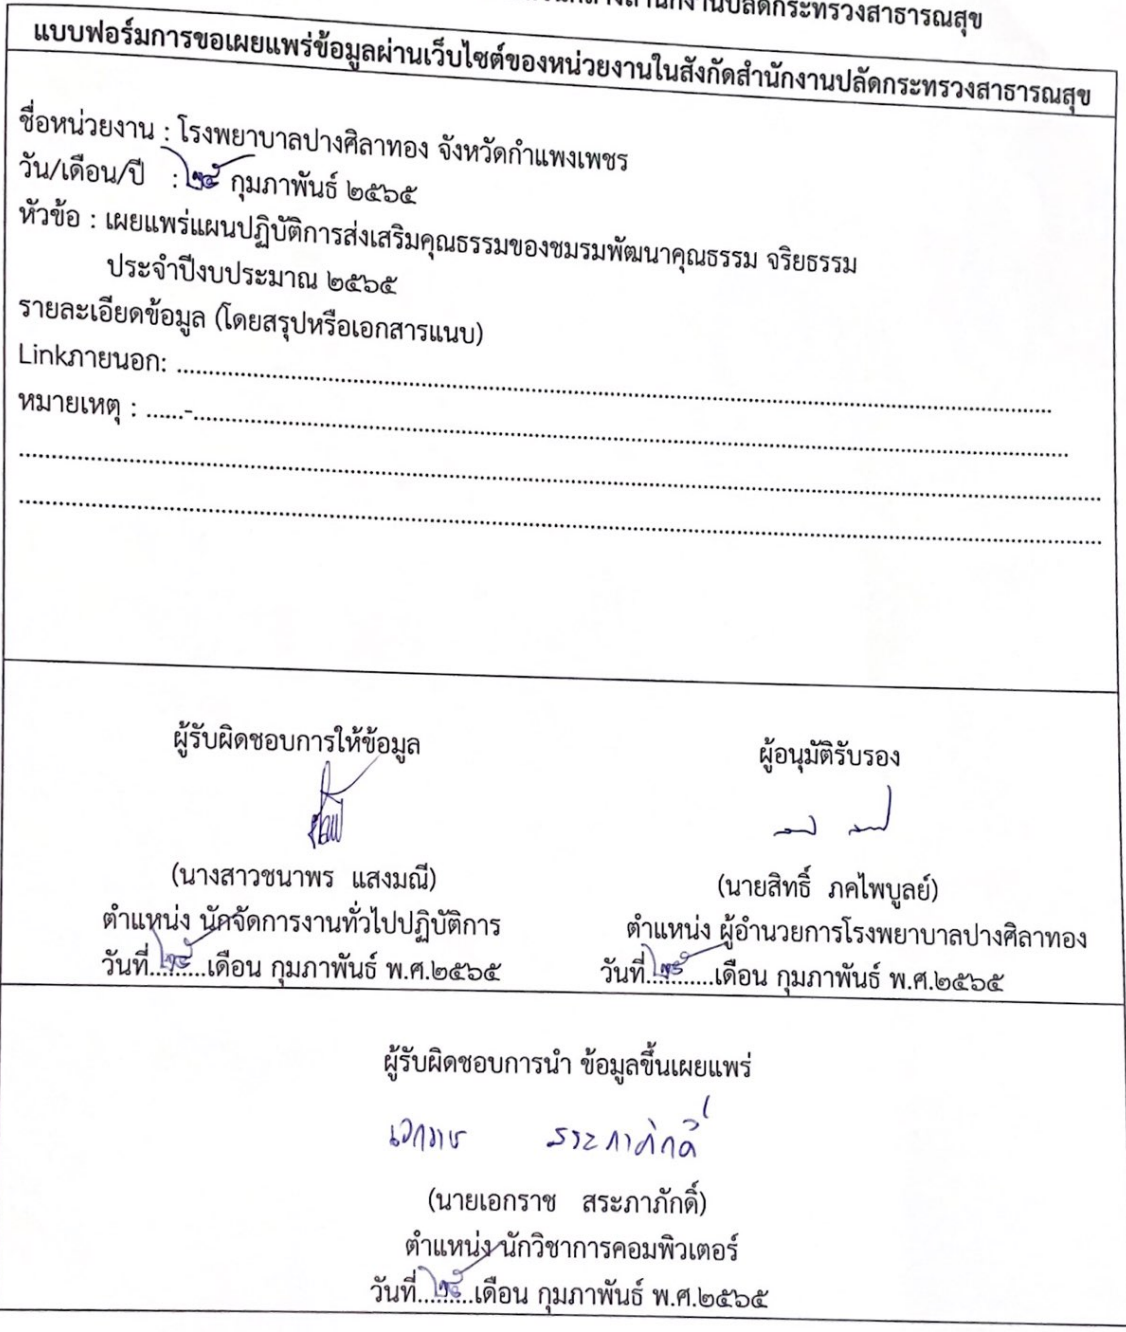 สำนักงานปลัดกระทรวงสาธารณสุข
แบบฟอร์มการขอเผยแพร่ข้อมูลผ่านเว็บไซต์ของหน่วยงานในสังกัดสำนักงานปลัดกระทรวงสาธารณสุข
ชื่อหน่วยงาน : โรงพยาบาลปางศิลาทอง จังหวัดกำแพงเพชร
วัน/เดือน/ปี : กุมภาพันธ์ ๒๕๖๕
หัวข้อ : เผยแพร่แผนปฏิบัติการส่งเสริมคุณธรรมของชมรมพัฒนาคุณธรรม จริยธรรม
ประจำปีงบประมาณ ๒๕๖๕
รายละเอียดข้อมูล (โดยสรุปหรือเอกสารแนบ)
Linkภายนอก: ........................................................................................................
หมายเหตุ : ......-........................................................................................................
........................................................................................................................
........................................................................................................................
ผู้รับผิดชอบการให้ข้อมูล
(นางสาวชนาพร แสงมณี)
ตำแหน่ง นักจัดการงานทั่วไปปฏิบัติการ
วันที่.........เดือน กุมภาพันธ์ พ.ศ.๒๕๖๕
ผู้อนุมัติรับรอง
(นายสิทธิ์ ภคไพบูลย์)
ตำแหน่ง ผู้อำนวยการโรงพยาบาลปางศิลาทอง
วันที่...........เดือน กุมภาพันธ์ พ.ศ.๒๕๖๕
ผู้รับผิดชอบการนำ ข้อมูลขึ้นเผยแพร่
เอกราช สระภาภักดิ์
(นายเอกราช สระภาภักดิ์)
ตำแหน่ง นักวิชาการคอมพิวเตอร์
วันที่.........เดือน กุมภาพันธ์ พ.ศ.๒๕๖๕